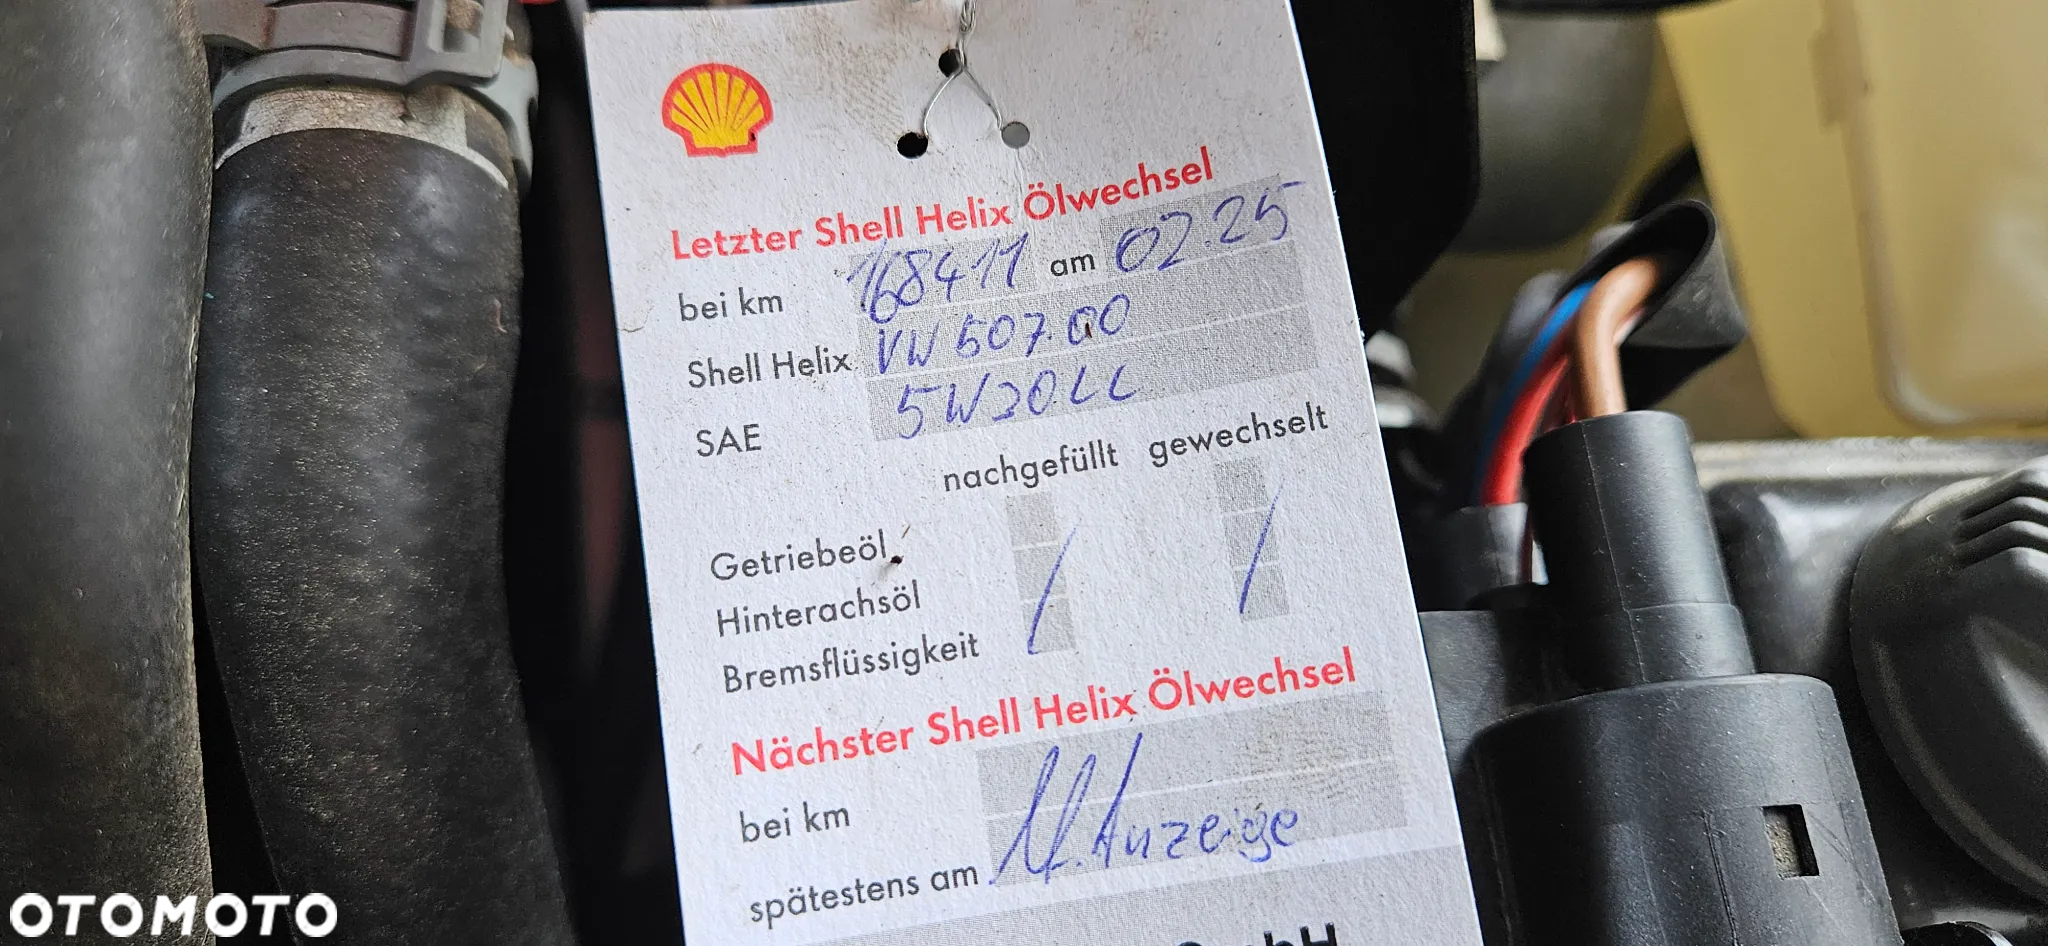 Letzter Shell Helix Ölwechsel
bei km 168411 am 02.25
Shell Helix VW 507.00
SAE 5W30LL
nachgefüllt gewechselt
Getriebeöl
Hinterachsöl
Bremsflüssigkeit
Nächster Shell Helix Ölwechsel
bei km
spätestens am Lt. Anzeige
OTOMOTO